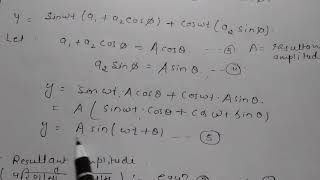 y = sinωt (a₁ + a₂cosø) + cosωt (a₂ sinø)
Let : a₁ + a₂cosø = A cosθ --- ③ A =
resultant
amplitude
a₂ sinø = A sinθ --- ④
y = sinωt. A cosθ + cosωt. A sinθ
= A ( sinωt. cosθ + cos ωt. sinθ )
y = A sin(ωt + θ) --- ⑤
Resultant amplitude